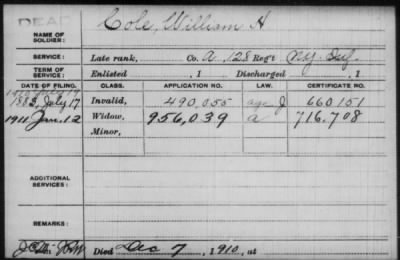 DEAD
NAME OF SOLDIER: Cole, William H
SERVICE: Late rank, Co. A, 128 Reg't N.Y. Inf.
TERM OF SERVICE: Enlisted , 1 Discharged , 1
DATE OF FILING. CLASS. APPLICATION NO. LAW. CERTIFICATE NO.
1883, July 17 Invalid, 490,055 660151
1911 Jan. 12 Widow, 956,039 a 716,708
Minor,
ADDITIONAL SERVICES:
REMARKS:
Died Dec 7, 1910, at